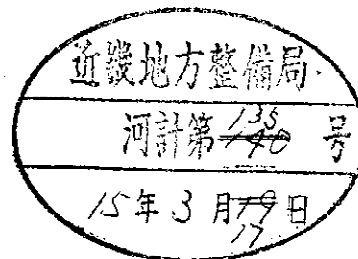 近畿地方整備局
河計第135号
15年3月17日